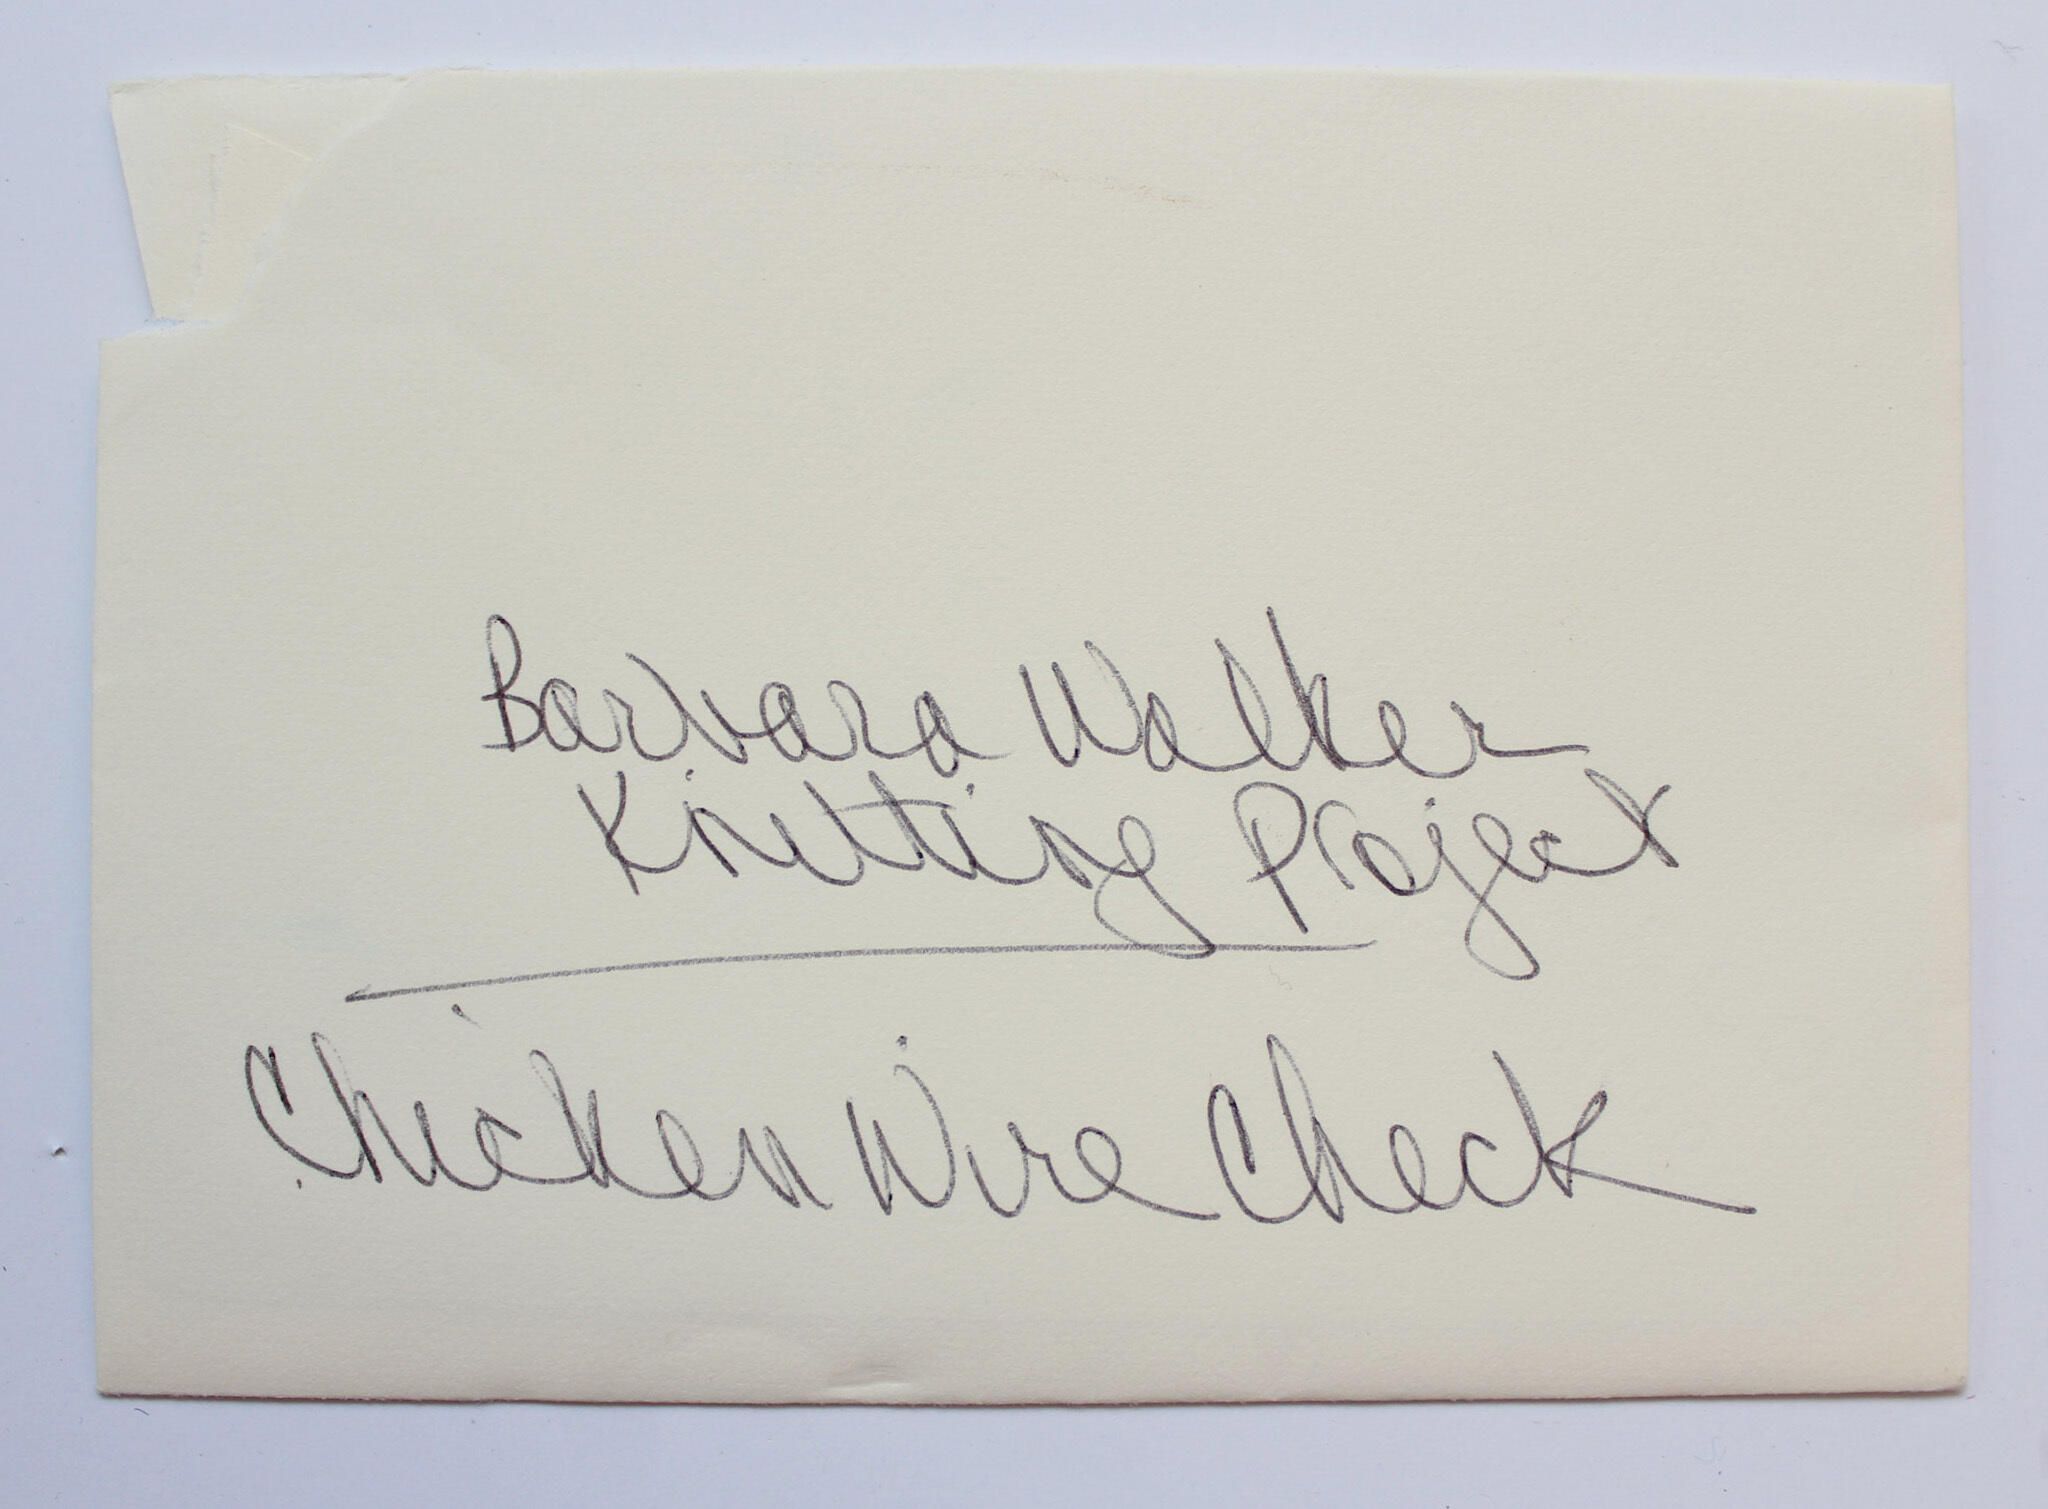 Barbara Walker
Knitting Project
Chicken Wire Check